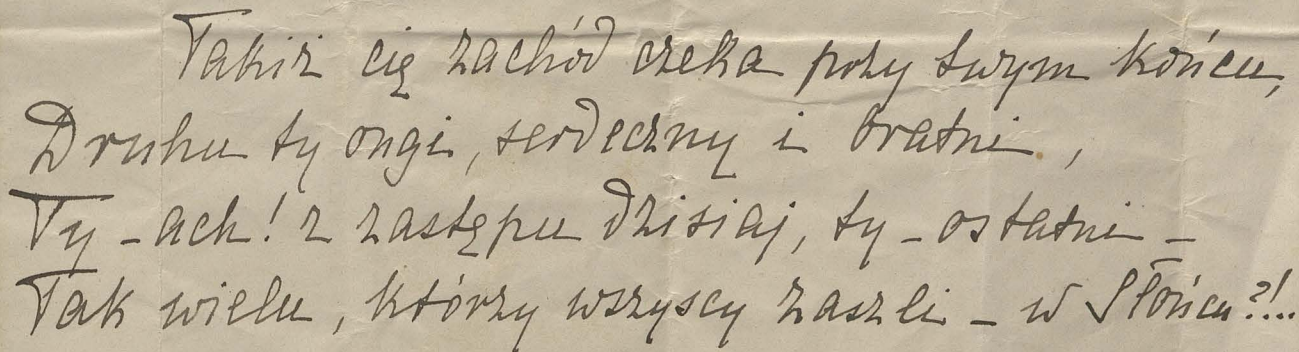 Takiż cię zachód czeka przy swym końcu,
Druhu ty ongi, serdeczny i bratni,
Ty – ach! z zastępu dzisiaj, ty – ostatni –
Tak wielu, którzy wszyscy zaszli – w Słońcu?!..